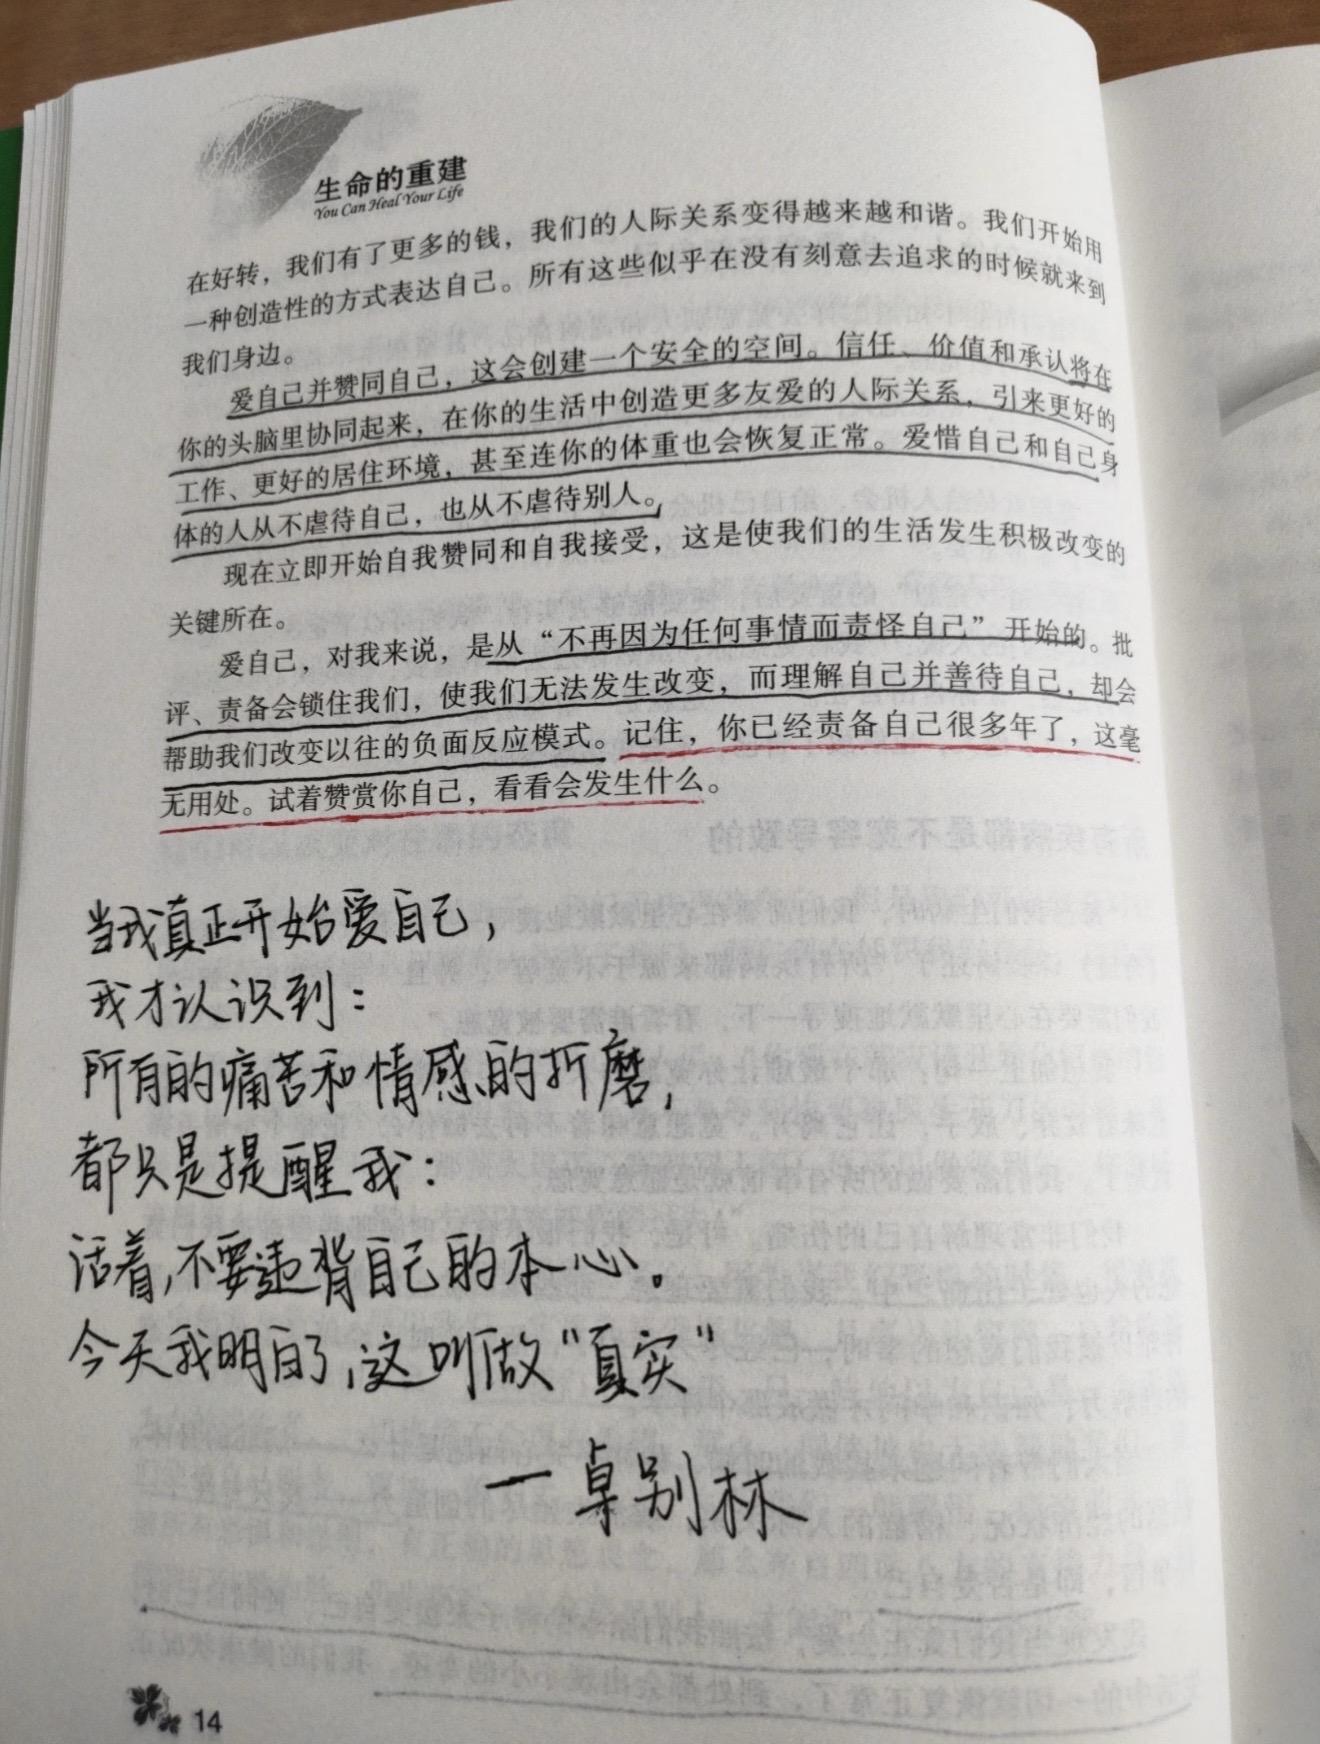 生命的重建
You Can Heal Your Life
在好转，我们有了更多的钱，我们的人际关系变得越来越和谐。我们开始用
一种创造性的方式表达自己。所有这些似乎在没有刻意去追求的时候就来到
我们身边。
爱自己并赞同自己，这会创建一个安全的空间。信任、价值和承认将在
你的头脑里协同起来，在你的生活中创造更多友爱的人际关系，引来更好的
工作、更好的居住环境，甚至连你的体重也会恢复正常。爱惜自己和自己身
体的人从不虐待自己，也从不虐待别人。
现在立即开始自我赞同和自我接受，这是使我们的生活发生积极改变的
关键所在。
爱自己，对我来说，是从“不再因为任何事情而责怪自己”开始的。批
评、责备会锁住我们，使我们无法发生改变，而理解自己并善待自己，却会
帮助我们改变以往的负面反应模式。记住，你已经责备自己很多年了，这毫
无用处。试着赞赏你自己，看看会发生什么。
当我真正开始爱自己，
我才认识到：
所有的痛苦和情感的折磨，
都只是提醒我：
活着，不要违背自己的本心。
今天我明白了，这叫做“真实”
一卓别林
14